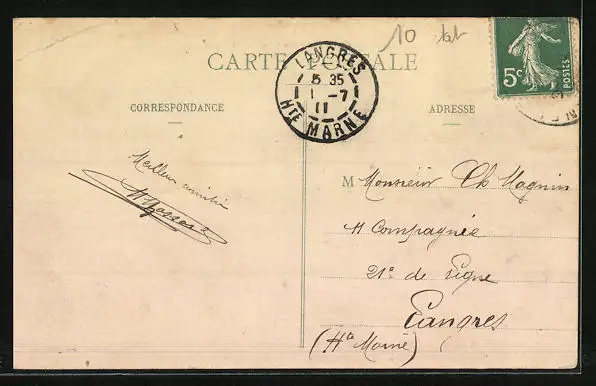 10
CARTE POSTALE
LANGRES
5 35
1 -7
11
Hte MARNE
5c
POSTES
CORRESPONDANCE
ADRESSE
Meilleur
M Monsieur Ch Magnin
11 Compagnie
21e de Ligne
Langres
(Hte Marne)